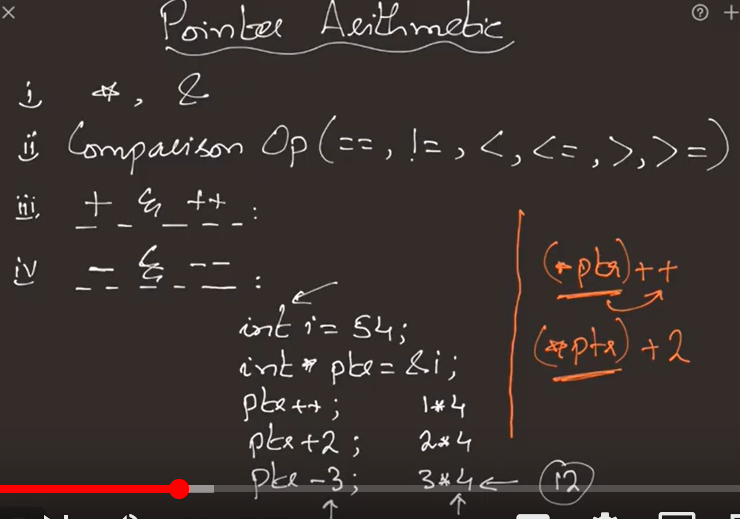 Pointer Arithmetic
i) *, &
ii) Comparison Op (==, !=, <, <=, >, >=)
iii) + & ++ :
iv) - & -- :
int i = 54;
int* ptr = &i;
ptr++; 1*4
ptr+2; 2*4
ptr-3; 3*4 ← 12
(*ptr)++
(*ptr)+2